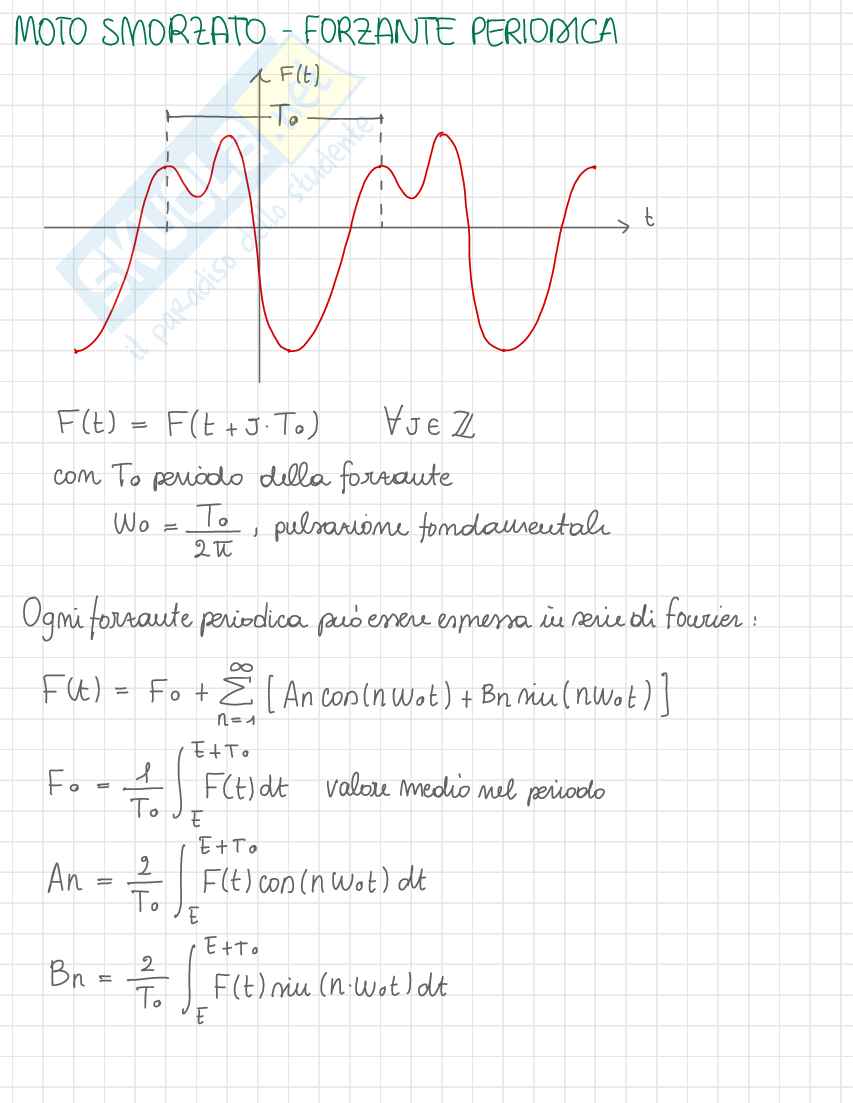 MOTO SMORZATO - FORZANTE PERIODICA
F(t)
T₀
t
SKUOLA.net
il paradiso dello studente
F(t) = F(t + J·T₀) ∀J∈ℤ
con T₀ periodo della forzante
W₀ = T₀/2π, pulsazione fondamentale
Ogni forzante periodica può essere espressa in serie di fourier:
F(t) = F₀ + ∑_{n=1}^{∞} [An cos(nW₀t) + Bn sin(nW₀t)]
F₀ = 1/T₀ ∫_{t̄}^{t̄+T₀} F(t)dt valore medio nel periodo
An = 2/T₀ ∫_{t̄}^{t̄+T₀} F(t)cos(nW₀t)dt
Bn = 2/T₀ ∫_{t̄}^{t̄+T₀} F(t)sin(n·W₀t)dt